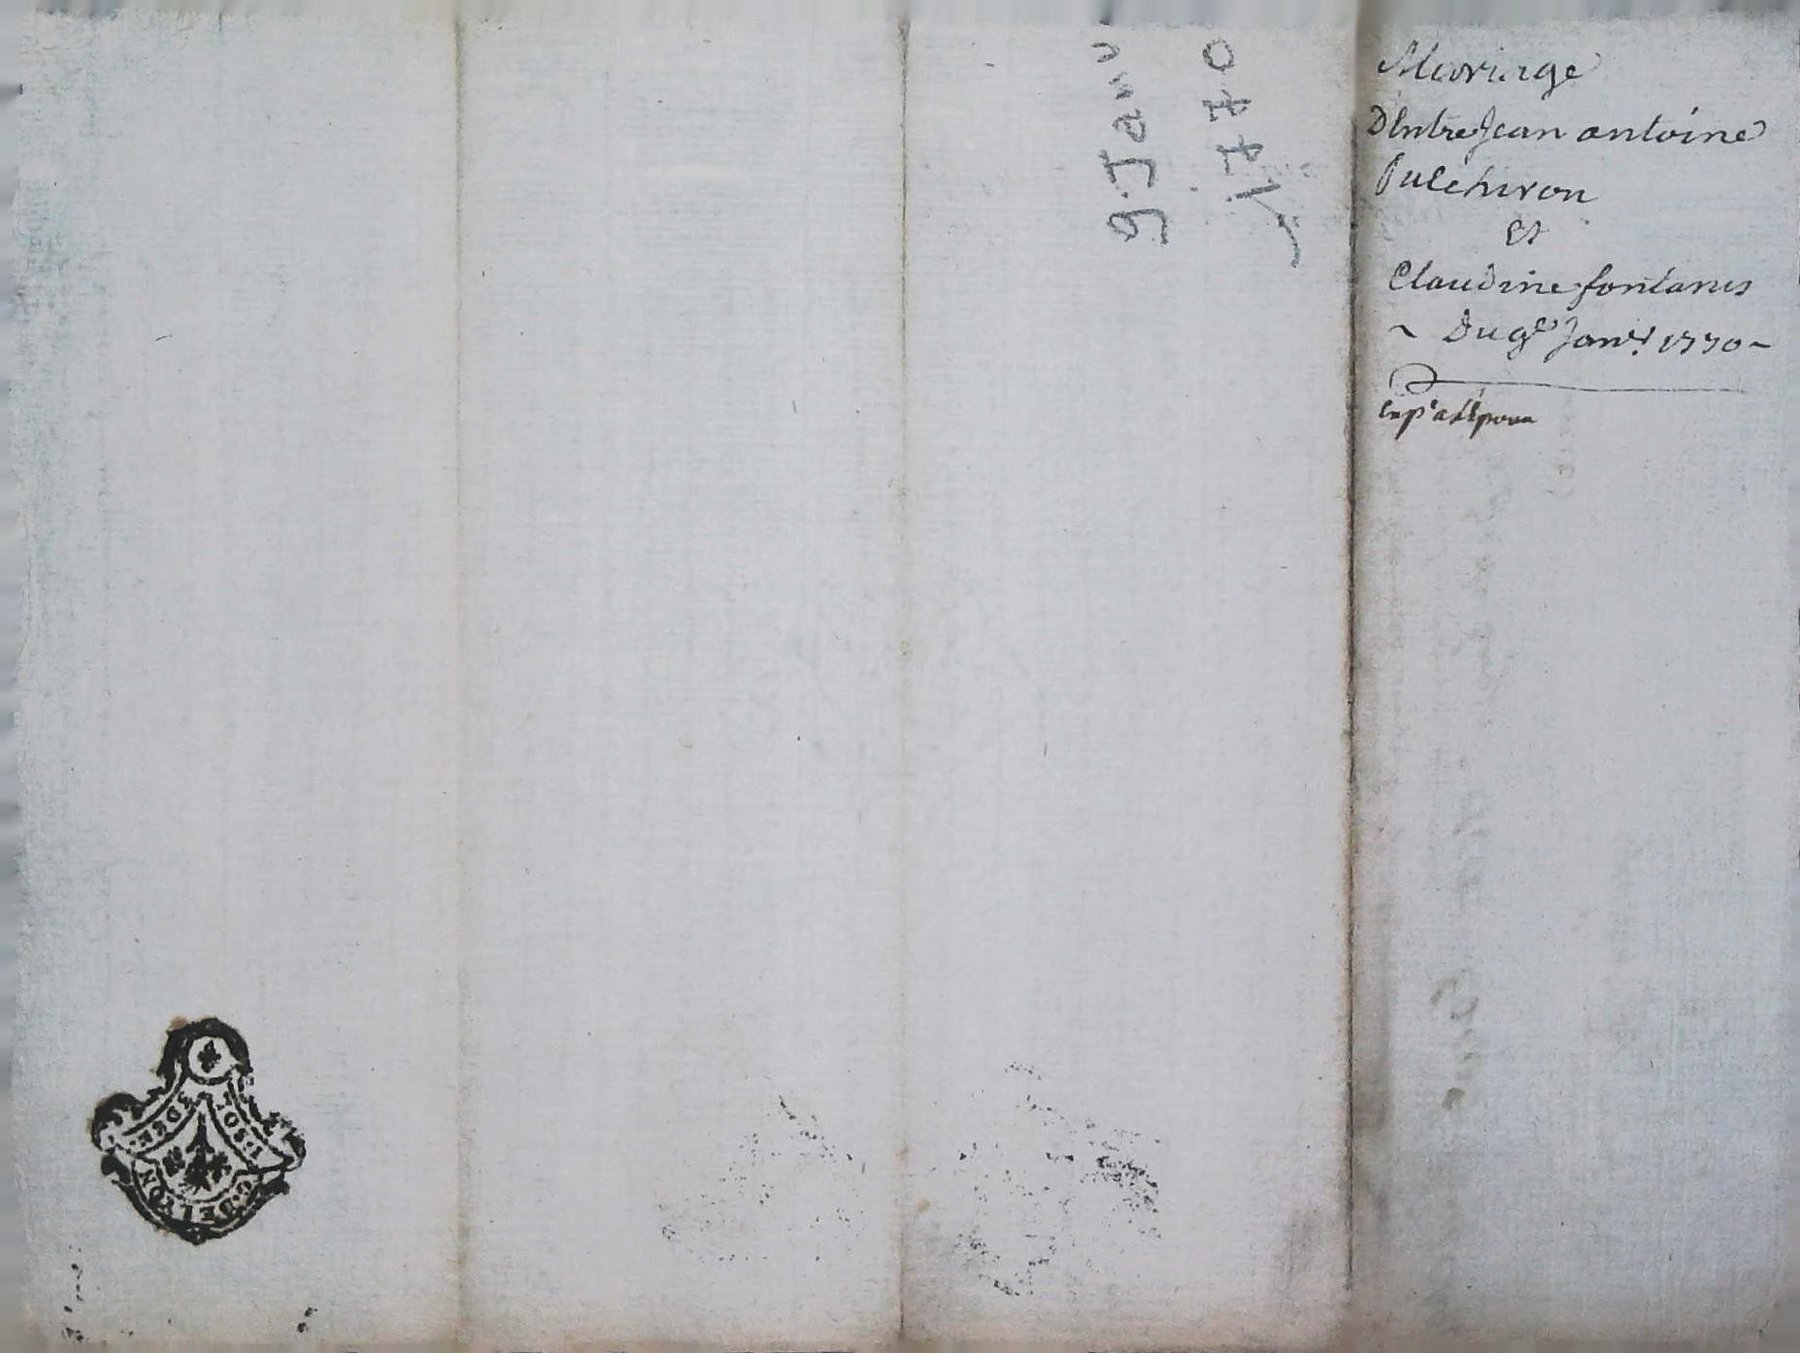 Mariage
D'Entre Jean antoine
Pulchiron
Et
Claudine fontanes
~ Du 9e Janv.r 1770 ~
9. Janv
1770
G. DE LYON